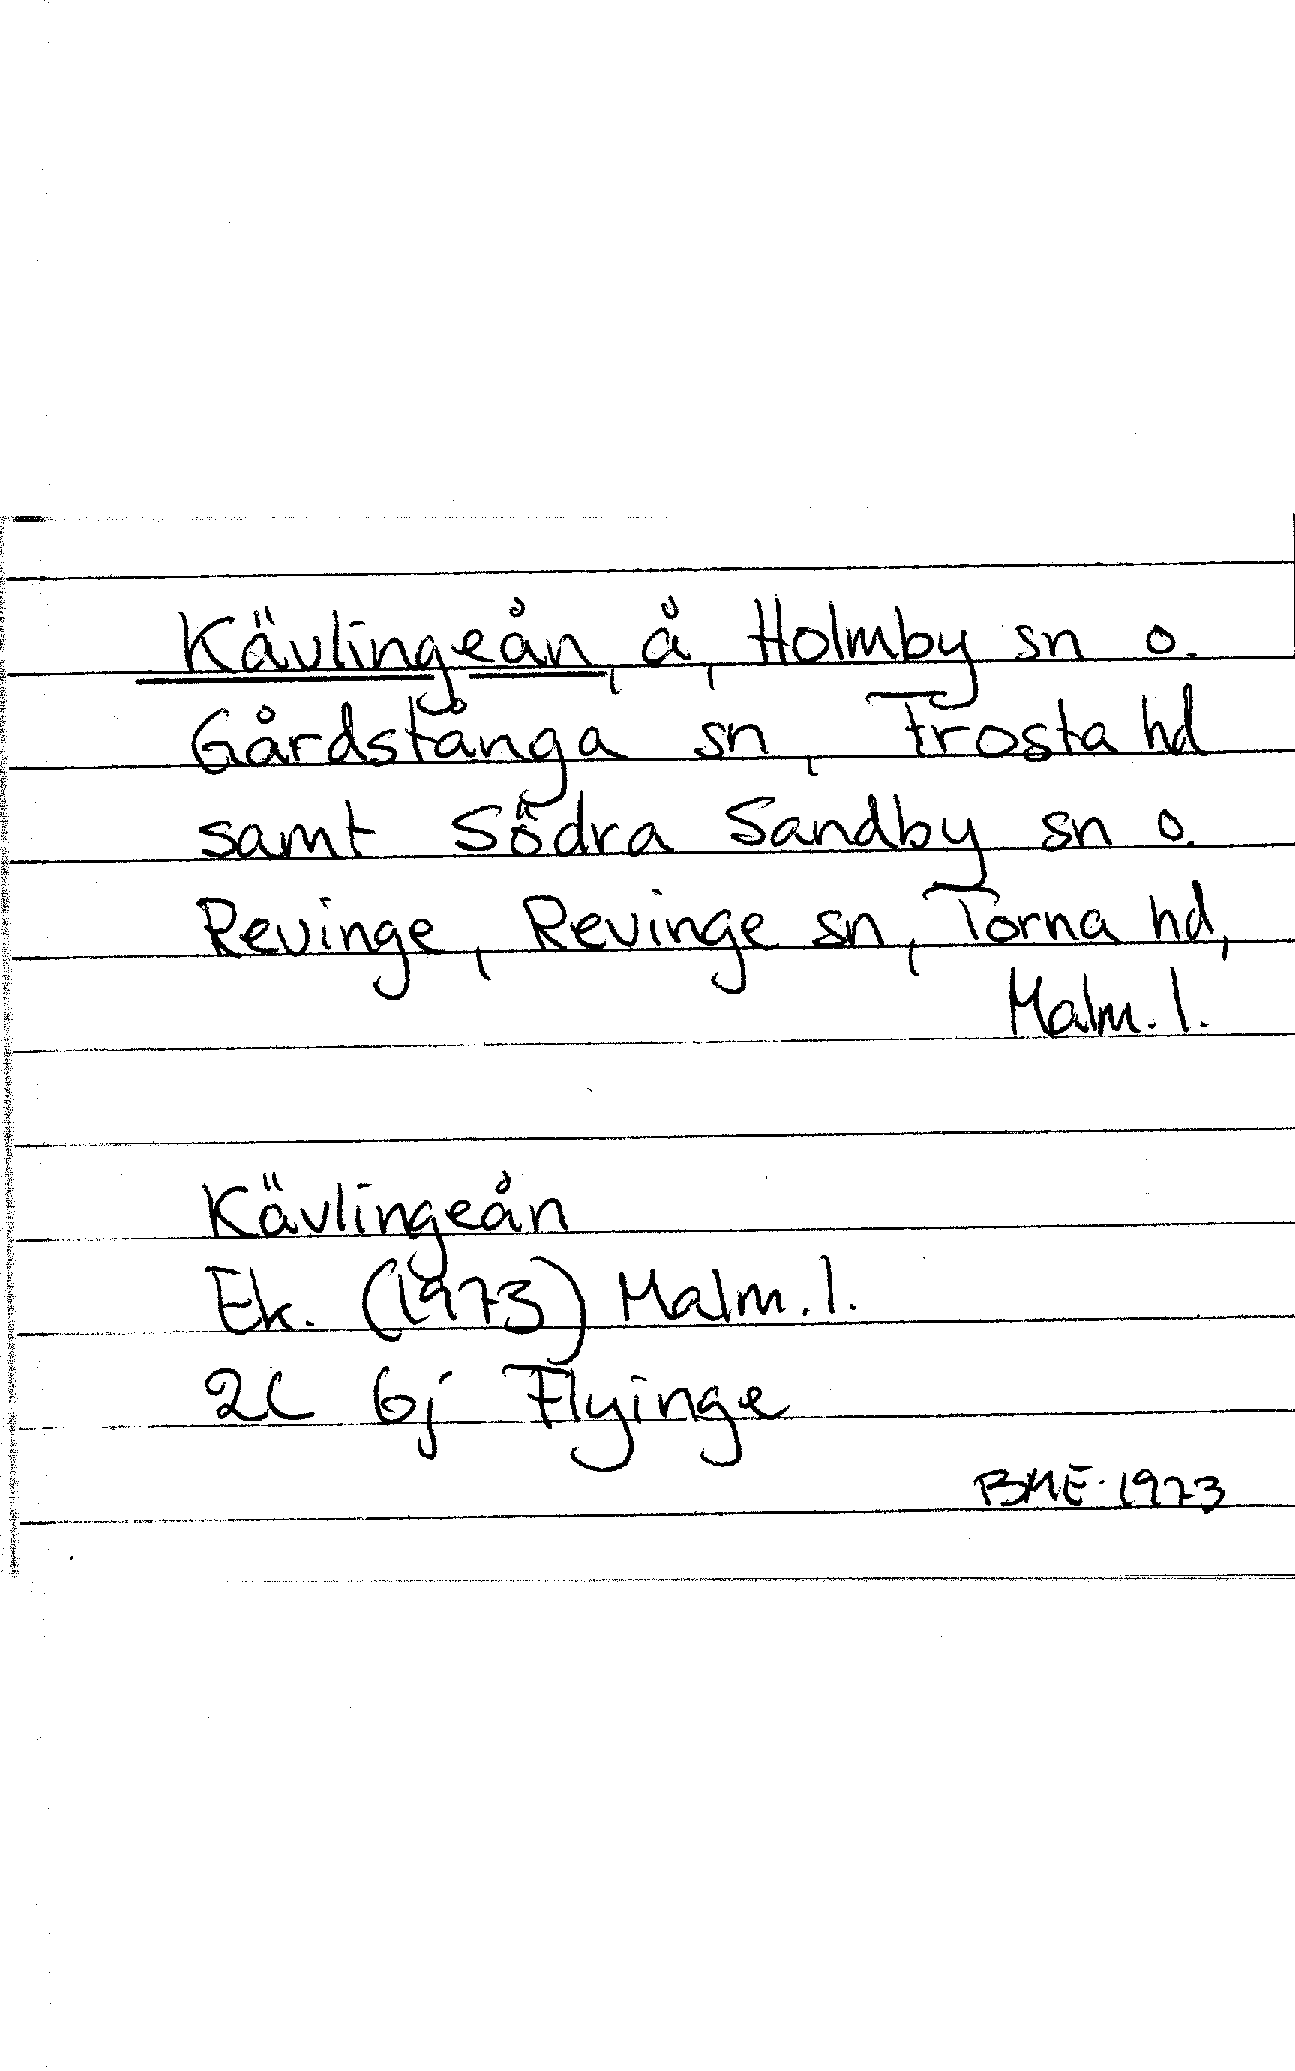 Kävlingeån, å, Holmby sn o.
Gårdstånga sn, Frosta hd
samt Södra Sandby sn o.
Revinge, Revinge sn, Torna hd,
Malm. l.
Kävlingeån
Ek. (1973) Malm. l.
2C 6j Flyinge
BME 1973